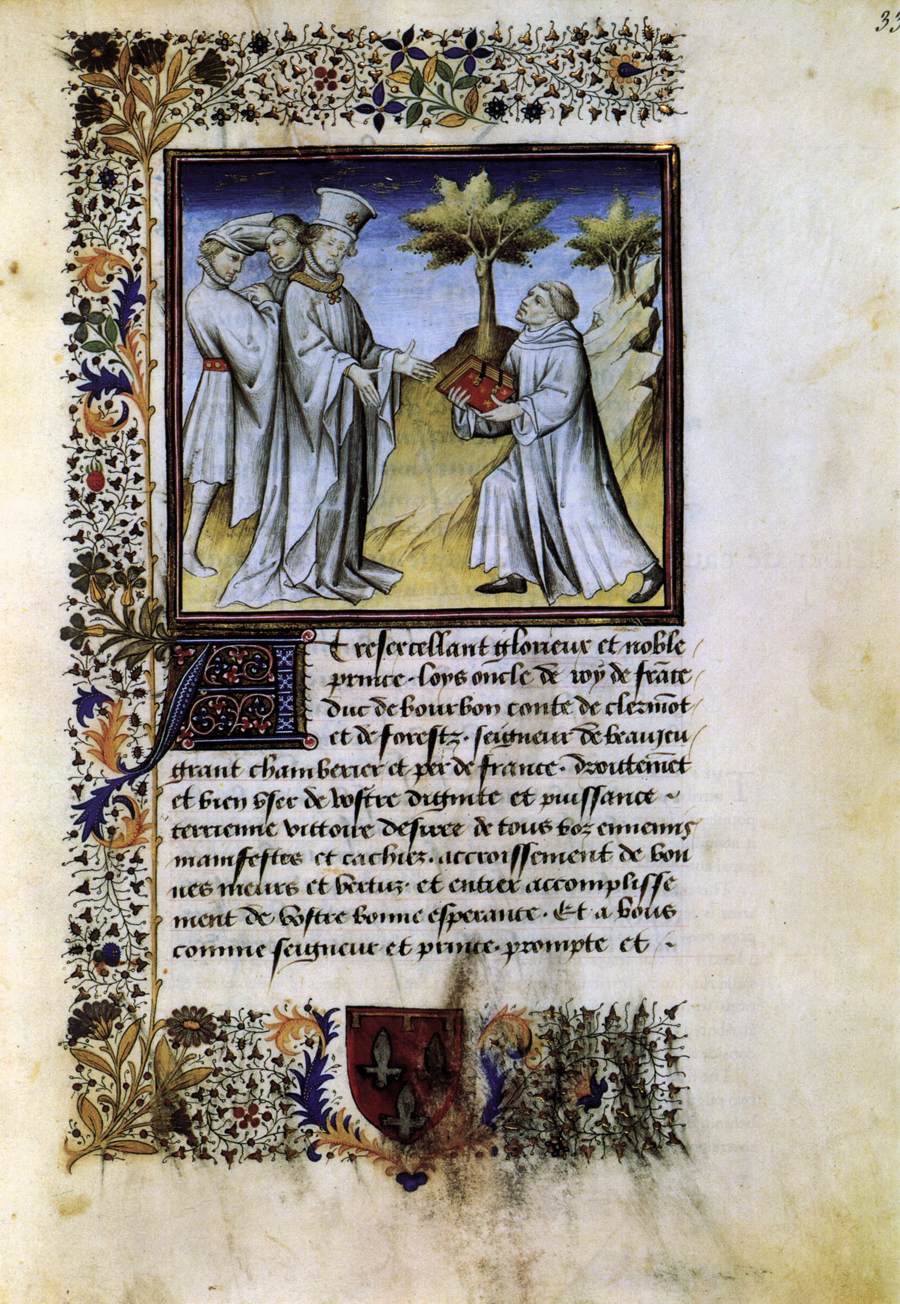 33
A tresexcellant glorieux et noble
prince. loys oncle de roy de frāce
duc de bourbon conte de clermōt
et de forestz. seigneur de beaujeu
grant chamberier et per de france. droutemēt
et bien vser de vostre dignite et puissance
terrienne victoire desiree de tous voz ennemis
manifestes et cachiez. accroissement de bon
nes meurs et vertuz. et entier accomplisse
ment de vostre bonne esperance. Et a vous
comme seigneur et prince. prompte et